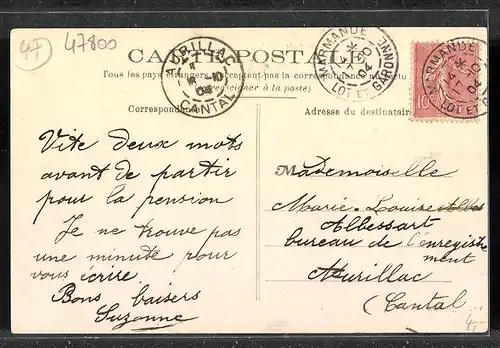 47
47800
CARTE POSTALE
Tous les pays étrangers n'acceptent pas la correspondance au recto
(se renseigner à la poste)
Correspondance
Adresse du destinataire
AURILLAC
CANTAL
MARMANDE
LOT ET GARONNE
MARMANDE
LOT ET
10
Vite deux mots
avant de partir
pour la pension
Je ne trouve pas
une minute pour
vous écrire.
Bons baisers
Suzanne
Mademoiselle
Marie-Louise
Albessart
bureau de l'enregistre
ment
Aurillac
(Cantal
4,-